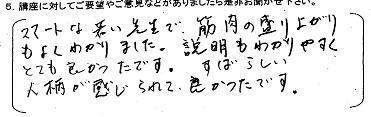 5. 講座に対してご要望やご意見などがありましたら是非お聞かせ下さい。
スマートな若い先生で、筋肉の盛り上がり
もよくわかりました。説明もわかりやすく
とても良かったです。すばらしい
人柄が感じられて、良かったです。